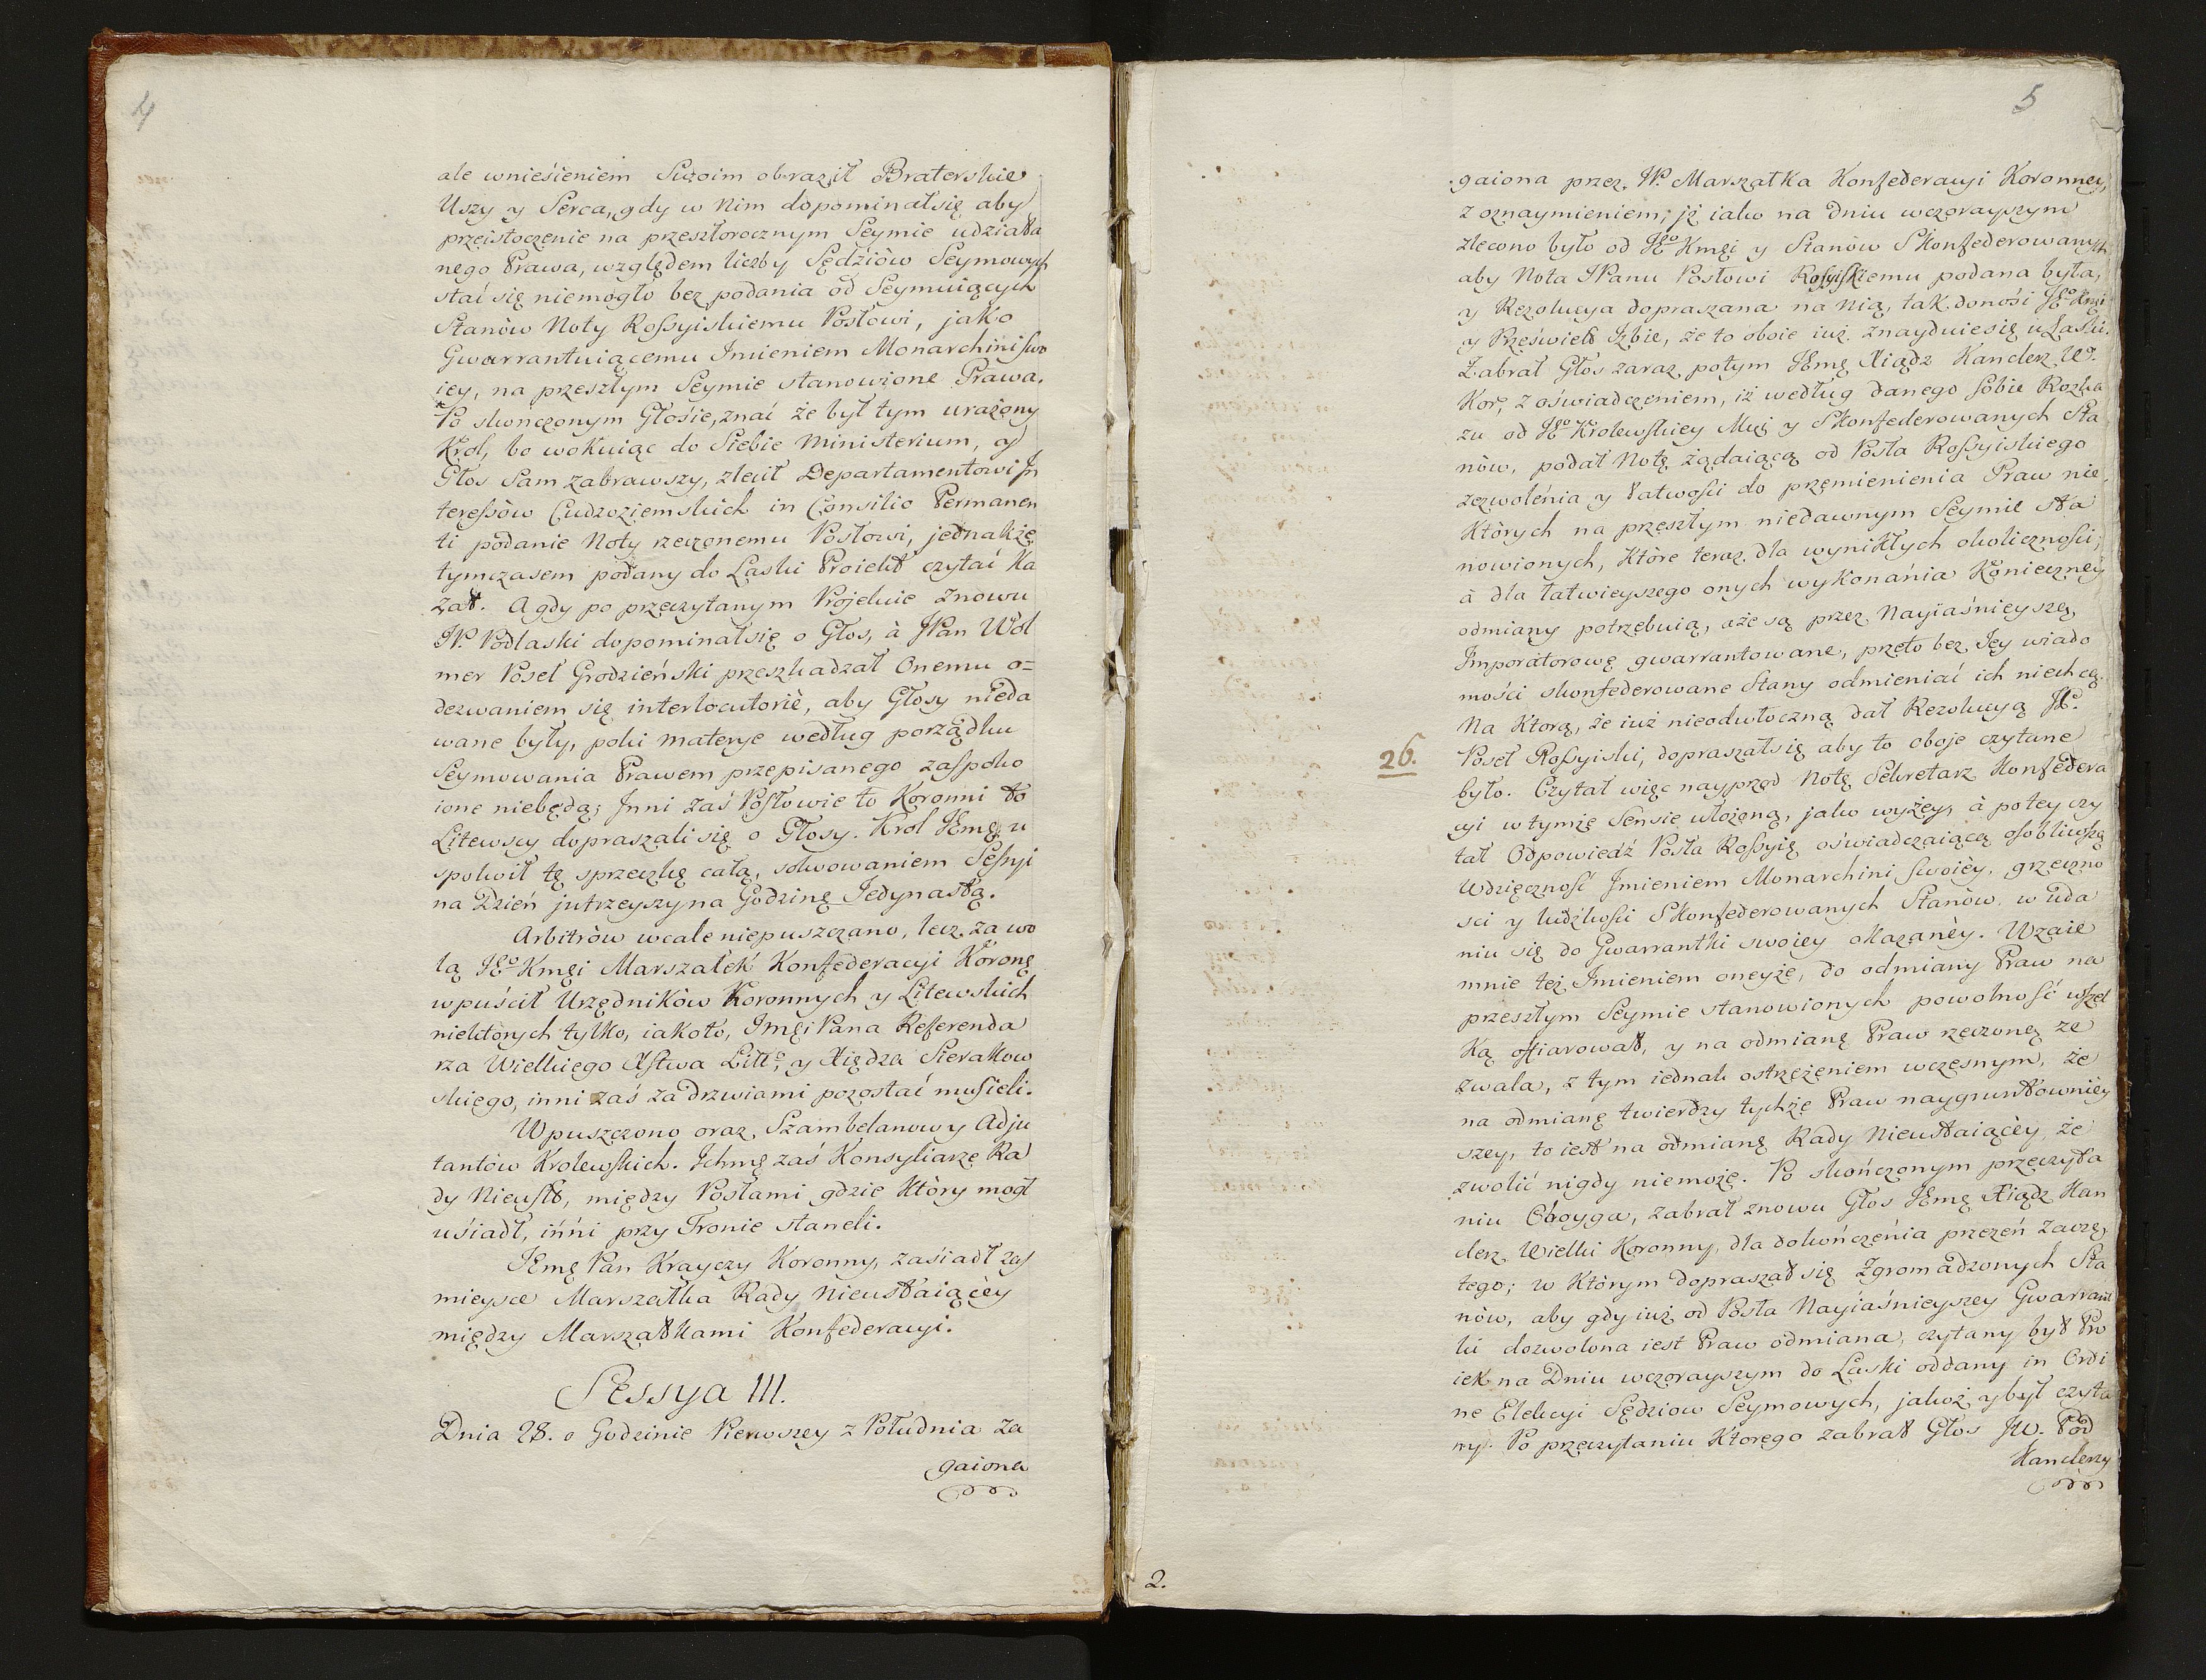 4
ale wnieśieniem Swoim obraził Braterskie
Uszy y Serca, gdy w Nim dopominał się aby
przeistoczenie na przeszłorocznym Seymie udziała
nego Prawa, względem liczby Sędziòw Seymowych
stać się niemogło bez podania od Seymuiących
Stanòw Noty Rossyiskiemu Posłowi, jako
Gwarrantuiącemu Jmieniem Monarchini swo
iey, na przeszłym Seymie stanowione Prawa.
Po skonczonym Głosie, znać że był tym urażony
Krol, bo wokuiąc do Siebie Ministerium, y
Głos Sam zabrawszy, zlecił Departamentowi Jn
teressòw Cudzoziemskich in Consilio Permanen
ti podanie Noty rzeczonemu Posłowi, jednakże
tymczasem podany do Laski Proiekt czytać ka
zał. A gdy po przeczytanym Projekcie znowu
JP. Podlaski dopominał się o Głos, à JPan Wol
mer Poseł Grodzieński przeszkadzał Onemu o=
dezwaniem się interlocutoriè, aby Głosy nieda
wane były, poki materye według porządku
Seymowania Prawem przepisanego zaspoko
ione niebędą; Jnni zaś Posłowie to Koronni to
Litewscy dopraszali się o Głosy. Krol JEmę u
spokoił tę sprzeczkę całą, solwowaniem Sessyi
na Dzień jutrzeyszy na Godzinę Jedynastą.
Arbitròw wcale niepuszczano, lecz za wo
lą JEo Kmęi Marszałek Konfederacyi Koronę
wpuścił Urzędnikòw Koronnych y Litewskich
niektòrych tylko, iako to, Jmęi Pana Referenda
rza Wielkiego Xstwa Litto, y Xiędza Sierakow
skiego, inni zaś za drzwiami pozostać musieli.
Wpuszczono oraz Szambelanow y Adju
tantòw Krolewskich. Jchmę zaś Konsyliarze Ra
dy Nieust, między Posłami gdzie ktòry mogł
uśiadł, inńi przy Tronie staneli.
JEmę Pan Krayczy Koronny, zasiadł zas
mieysce Marszałka Rady Nieustaiącèy
między Marszałkami Konfederacyi.
Sessya III.
Dnia 28. o Godzinie Pierwszey z Południa za
gaiona
5
gaiona przez JP. Marszałka Konfederacyi Koronney,
z oznaymieniem, iż iako na Dniu wczorayszym
zlecono było od JEo Kmęi y Stanòw Skonfederowanych,
aby Nota JPanu Posłowi Rossyiskiemu podana była,
y Rezolucya dopraszana na Nią, tak donosi JEo Kmęi
y Przeświet Jzbie, że to oboie iuż znayduie się u Laski.
Zabrał Głos zaraz potym JEmę Xiądz Kanclerz Wo.
Kor, z oświadczeniem, iż według danego sobie Rozka
zu od JEo Krolewskiey Mci y Skonfederowanych Sta
nòw, podał Notę żądaiącą od Posła Rossyiskiego
zezwolénia y łatwosci do przemienienia Praw nie
ktòrych na przeszłym niedawnym Seymie sta
nowionych, ktòre teraz dla wynikłych okolicznosci,
à dla łatwieyszego onych wykonánia konieczney
odmiany potrzebuią, aże są przez Nayiaśnieyszę
Jmporatorowę gwarrantowane, przeto bez Jey wiado
mości skonfederowane Stany odmieniać ich niechcą.
Na ktorą, że iuż nieodwłoczną dał Rezolucyą JP.
26. Poseł Rossyiski, dopraszał się aby to oboje czytane
było. Czytał więc nayprzod Notę Sekretarz Konfedera
cyi w tymże Sensie ułożoną, jako wyżey, à po tey czy
tał Odpowiedź Posła Rossyię oświadczaiącą osobliwszą
wdzięczność Jmieniem Monarchini swoièy, grzeczno
sci y ludzkości Skonfederowanych Stanòw w uda
niu się do Gwarrantki swoiey okazanèy. Wzaie
mnie też Jmieniem oneyże, do odmiany Praw na
przeszłym Seymie stanowionych powolność wszel
ką ofiarował, y na odmianę Praw rzeczonę ze
zwala, z tym iednak ostrzeżeniem wczesnym, że
na odmianę twierdzy tychże Praw naygruntownièy
szey, to iest na odmianę Rady Nieustaiącèy, że
zwolić nigdy niemoże. Po skończonym przeczyta
niu Oboyga, zabrał znowu Głos JEmę Xiądz Kan
clerz Wielki Koronny, dla dokończénia przezeń zaczę
tego; w ktòrym dopraszał się Zgromadzonych Sta
nòw, aby gdy iuż od Posła Nayiaśnieyszey Gwarrant
ki dozwolona iest Praw odmiana, czytany był Pro
iekt na Dniu wczorayszym do Laski oddany in Ordi
ne Elekcyi Sędziow Seymowych, jakoż y był czyta
ny. Po przeczytaniu ktorego zabrał Głos JW. Pod
Kanclerzy
2.